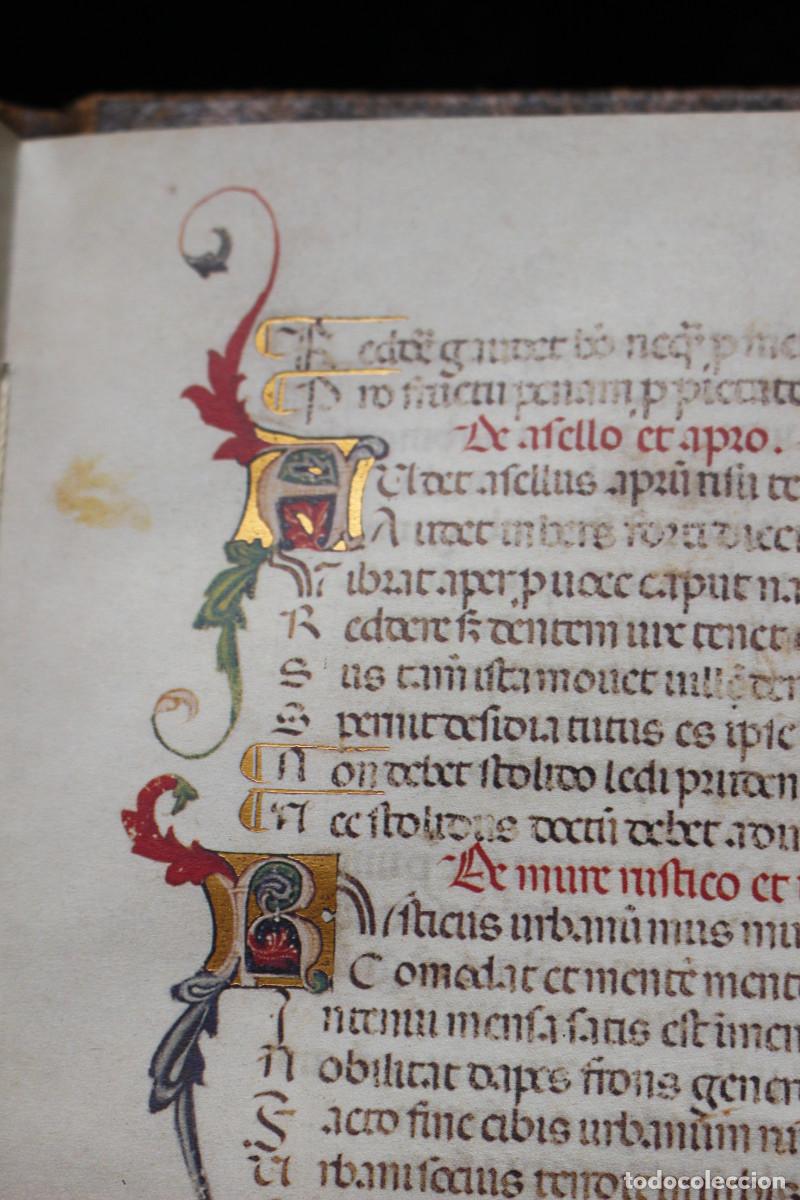 Reddere gaudet hō neq̄ꝫ p me
Pro fructu penam, p pietate
De asello et apro.
AUdet asellus aprū risu te
Audet inhers forti dice
Vibrat aper, p uoce caput na
Reddere s̄ dentem uix tenet
Sus tam̄ ista mouet uillē den
Sperıııt desidia tutus es ipse
Non debet stolido ledi pruden
Nec stolidus doctū debet adiu
De mure rustico et
RUsticus urbanū mus mu
Comodat et mentē mente
In tenui mensa satis est imen
Nobilitat dapes frons gener
Facto fine cibis urbanum rus
Urbani socius
todocoleccion